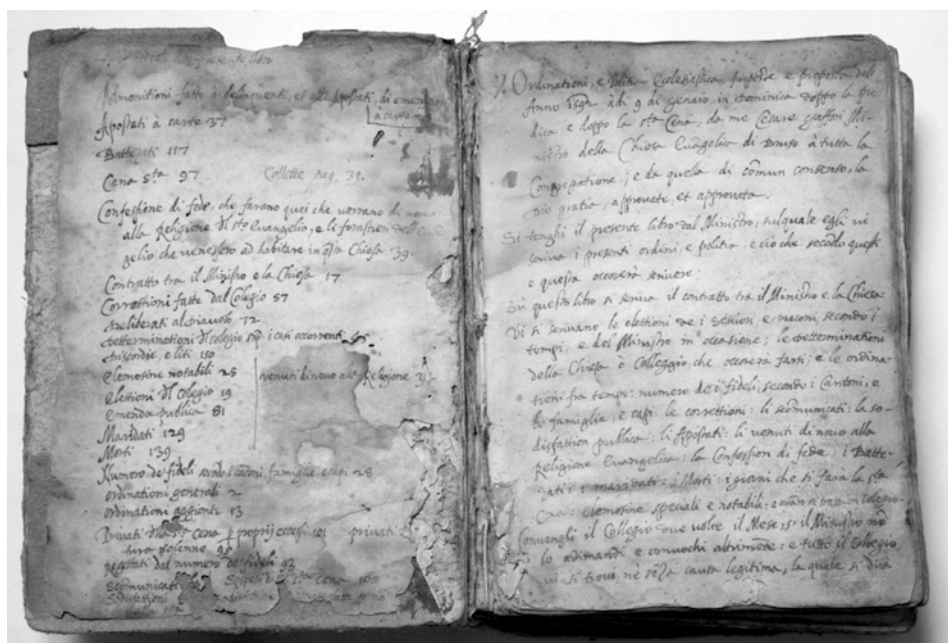 libro
Admonitioni fatte à delinquenti, et alli Apostati, di emen
à carte
Apostati à carte 37
Battezati 117
Cena S.ta 97 Collette pag. 31.
Confessione di fede, che farano quei che verrano di novo
alla Religione d'l sto Evangelio, e li forastieri dell'
gelio che venessero ad habitare in qsta Chiesa 39.
Contratto tra il Ministro e la Chiesa 17
Correttioni fatte dal Colegio 57
deliberati al diavolo 72
Determinationi d'l colegio i casi occorrenti 95.
discordie, e liti 150
Elemosine notabili 25 venuti di novo alla Religione
Elettioni d'l Colegio 19
Emenda publica 81
Maridati 129
Morti 139
Numero de fideli secondo i cantoni, famiglie, e capi 28
ordinationi generali 2
ordinationi aggionte 13
Privati d'lla sta cena p proprij eccessi 101 privati
solenne 95
del numero de fideli 93
scomunicati cena 105
Ordinationi, e Politia Ecclesiastica e proposta dell'
Anno 1592 à di 9 di Genaio in dominica doppo la pre
dica e doppo la sta Cena, da me Cesare Gaffori Mi-
nistro della Chiesa Evangelica di à tutta la
Congregatione; e da quella di comun consento, la
Dio gratia, approvate, et approveta.
Si tenghi il presente libro dal Ministro, sulquale egli vi
scriva i presenti ordini, e politia, e ciò che secodo questi
e questa occorerà scrivere.
Su questo libro si scriva il contratto tra il Ministro e la Chiesa.
Vi si scrivano le elettioni de i Seniori e diaconi, secondo i
tempi, e del Ministro in occasione; le determinatione
della Chiesa ò Colleggio, che occorerà farsi; e le ordina
tioni fra tempi: numero de i fideli, secondo i Cantoni, e
le famiglie, e capi: le correttioni: li scomunicati: la so-
disfattion publica: li Apostati: li venuti di novo alla
Religione Evangelica: la Confession di fede: i Batte-
zati: i maridati: i Morti: i giorni che si farà la sta
Cena: Elemosine speciali e notabili: Colegio.
Convenghi il Collegio due volte il Mese, si il Ministro nō
lo adimandi e convochi altrimēte: e tutto il Collegio
vi si trovi, nè sēza causa legitima, la quale si dirà